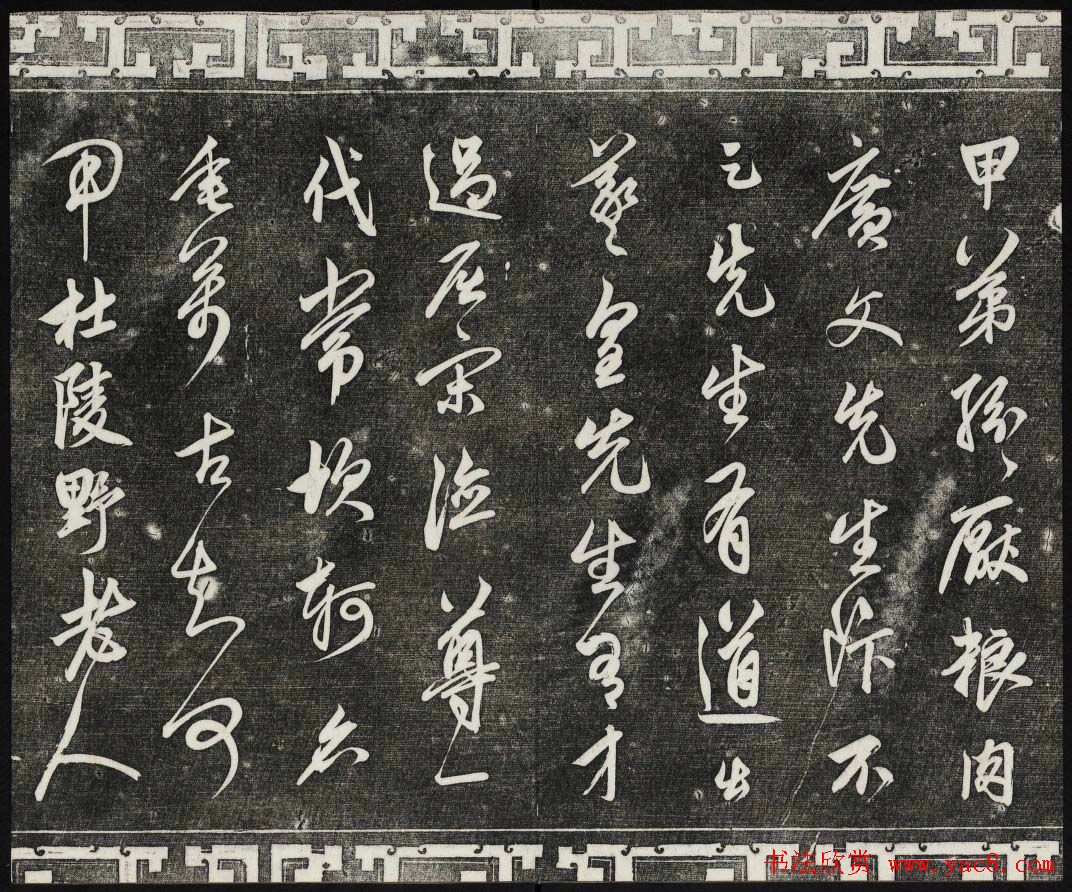 甲第紛紛厭粮肉
廣文先生飯不
足先生有道出
羲皇先生有才
過屈宋德尊一
代常坎軻名
垂萬古知何
用杜陵野老人
书法欣赏 www.yac8.com